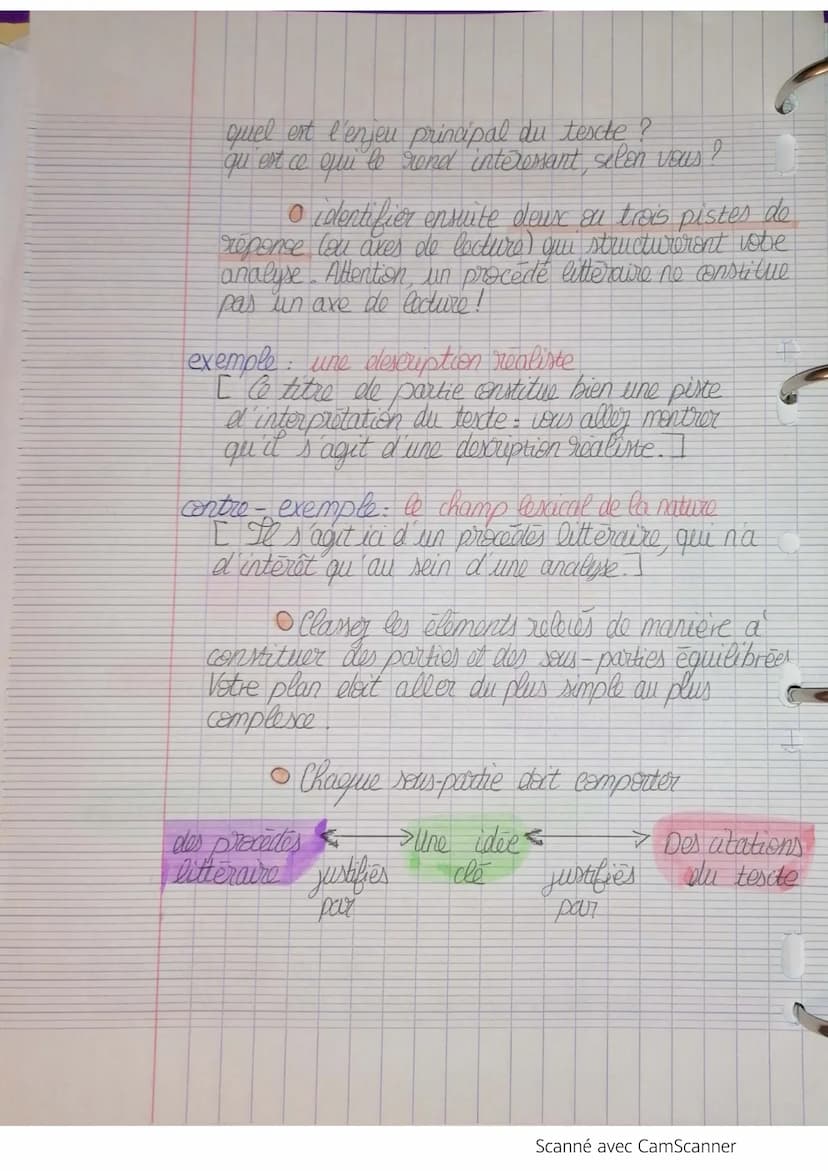 quel est l'enjeu principal du texte ?
qu'est ce qui le rend intéressant, selon vous ?
identifier ensuite deux ou trois pistes de
réponse (ou axes de lecture) qui structureront votre
analyse. Attention, un procédé littéraire ne constitue
pas un axe de lecture !
exemple : une description réaliste
[ Ce titre de partie constitue bien une piste
d'interprétation du texte : vous allez montrer
qu'il s'agit d'une description réaliste. ]
contre-exemple : le champ lexical de la nature
[ Il s'agit ici d'un procédés littéraire, qui n'a
d'intérêt qu'au sein d'une analyse. ]
Classez les éléments relevés de manière à
constituer des parties et des sous-parties équilibrées
Votre plan doit aller du plus simple au plus
complexe.
Chaque sous-partie doit comporter
des procédés
littéraire
justifiés
par
Une idée
clé
justifiés
par
Des citations
du texte
Scanné avec CamScanner